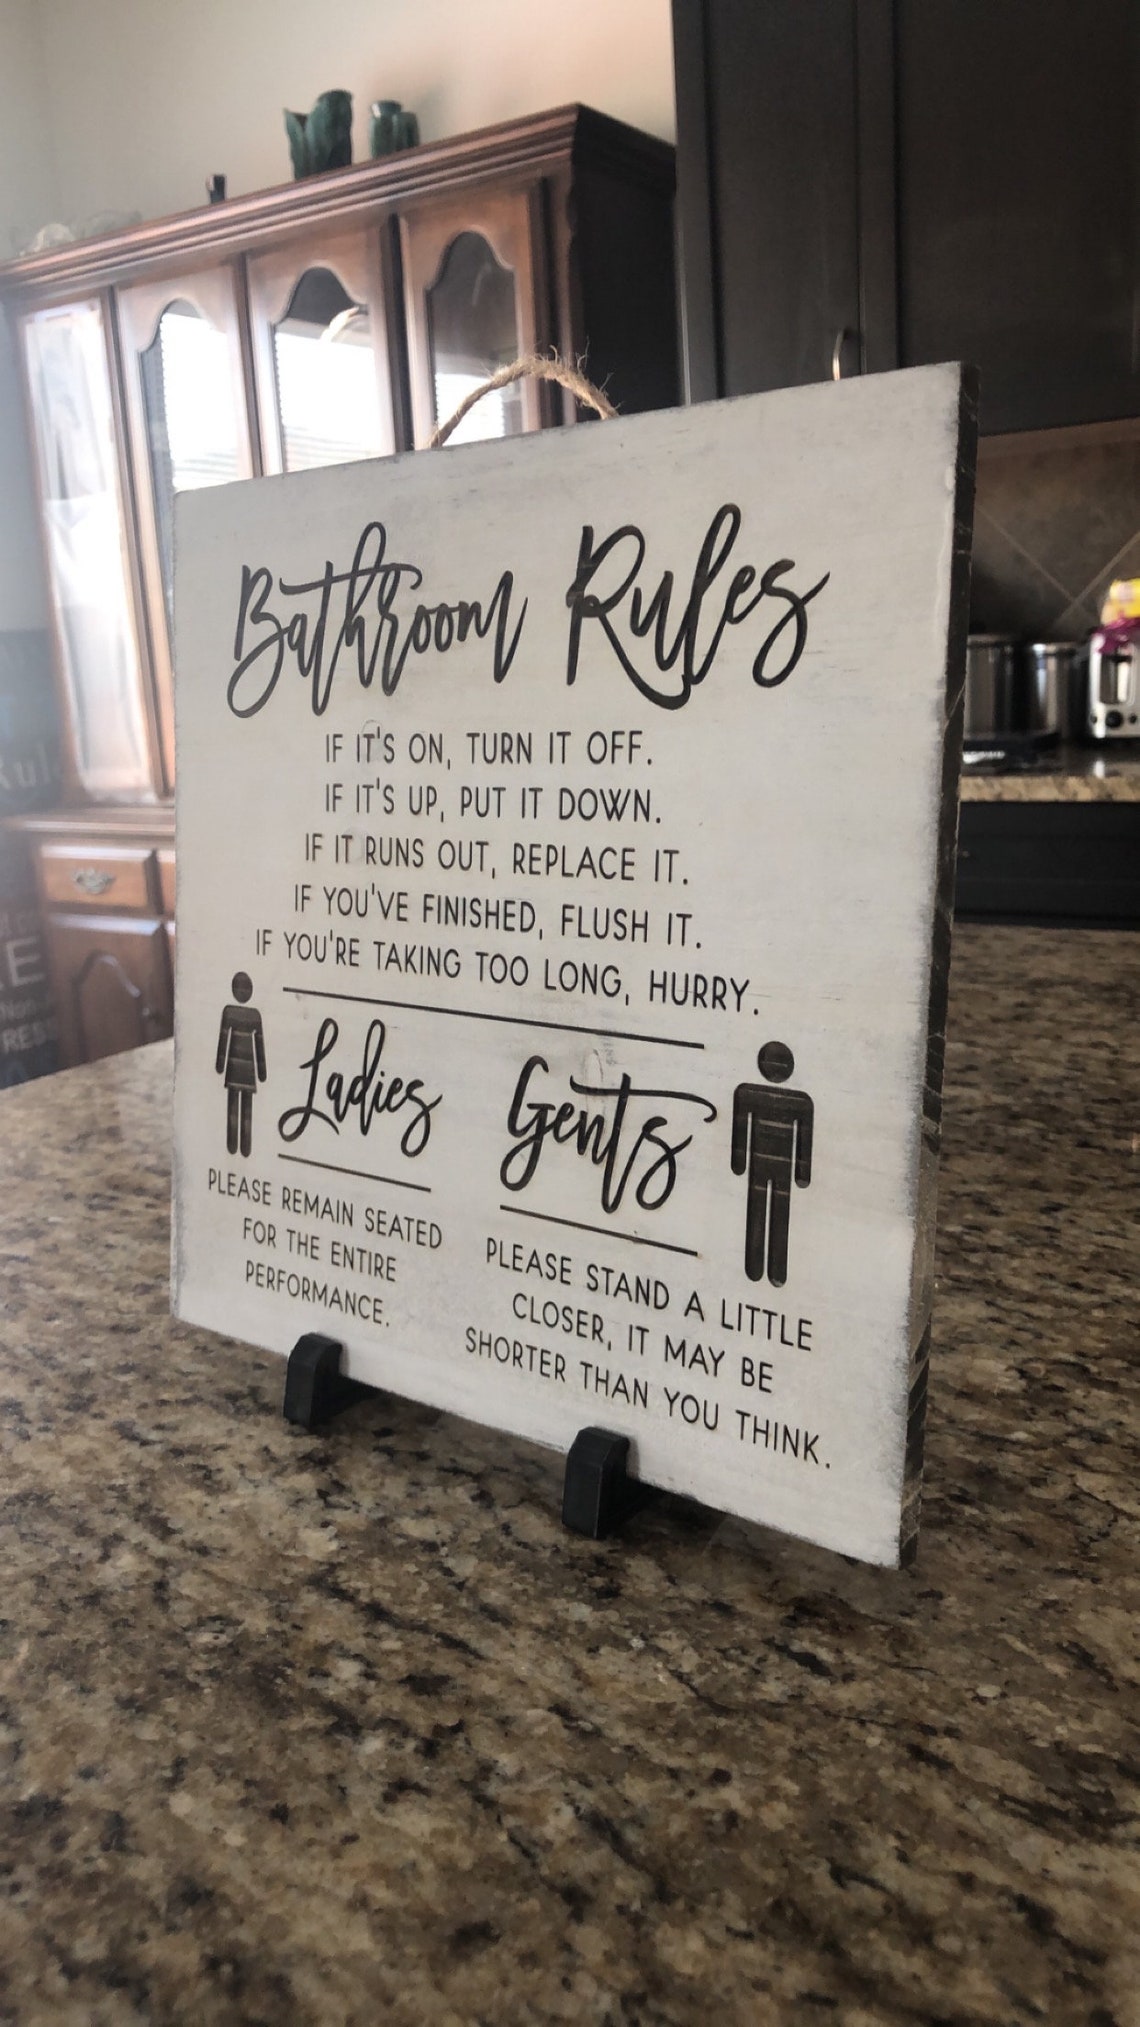 Bathroom Rules
IF IT'S ON, TURN IT OFF.
IF IT'S UP, PUT IT DOWN.
IF IT RUNS OUT, REPLACE IT.
IF YOU'VE FINISHED, FLUSH IT.
IF YOU'RE TAKING TOO LONG, HURRY.
Ladies
PLEASE REMAIN SEATED
FOR THE ENTIRE
PERFORMANCE.
Gents
PLEASE STAND A LITTLE
CLOSER, IT MAY BE
SHORTER THAN YOU THINK.